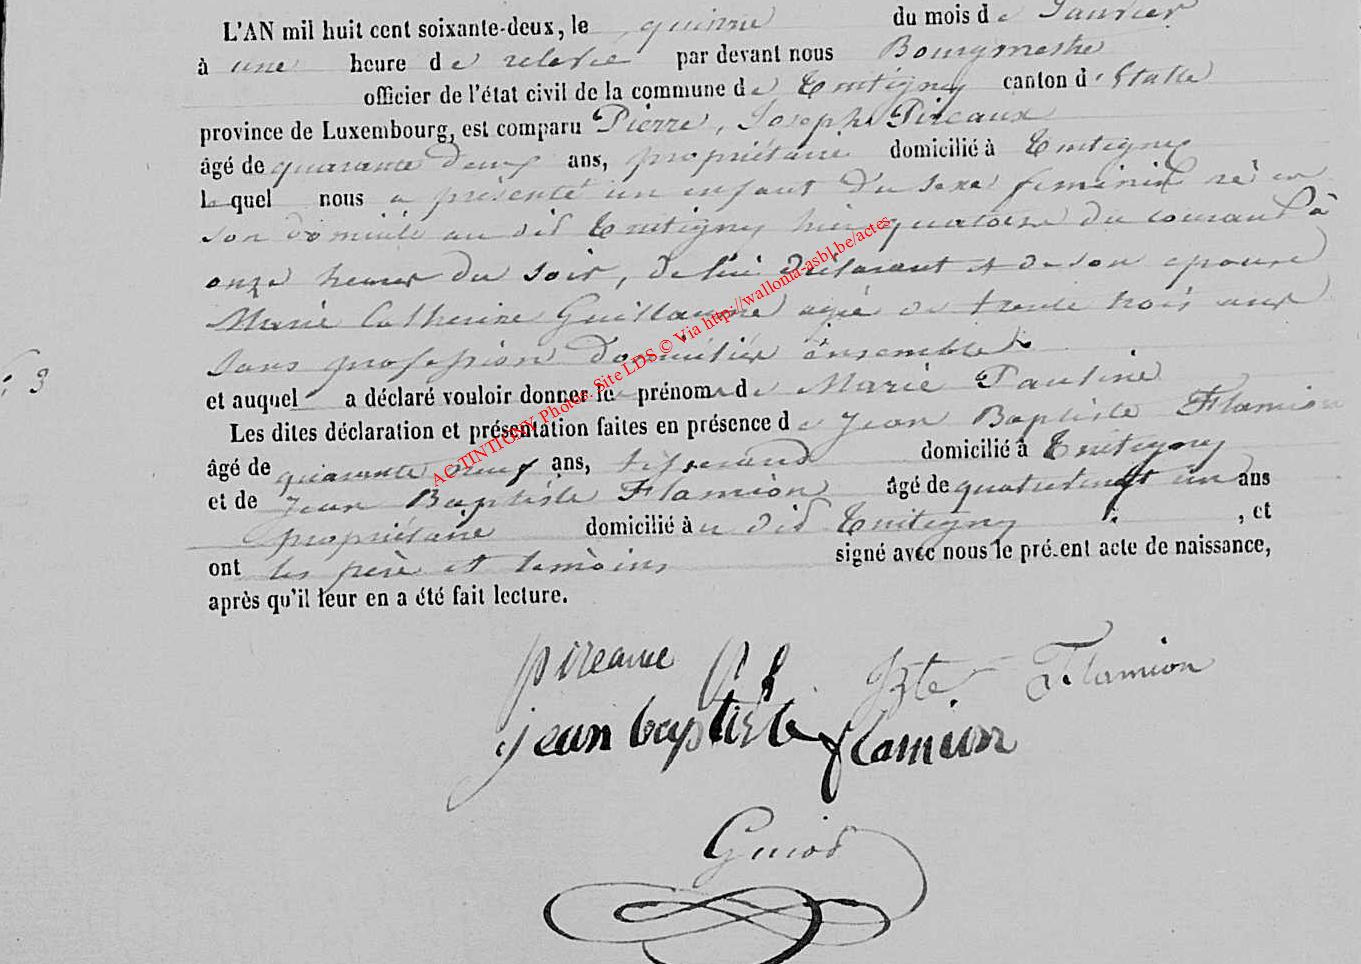 L'AN mil huit cent soixante-deux, le quinze du mois de Janvier
à une heure de relevée par devant nous Bourgmestre
officier de l'état civil de la commune de Tintigny canton d'Etalle
province de Luxembourg, est comparu Pierre, Joseph Pireaux
âgé de quarante deux ans, propriétaire domicilié à Tintigny
Lequel nous a présenté un enfant du sexe féminin né en
son domicile au dit Tintigny hier quatorze du courant à
onze heures du soir, de lui déclarant & de son épouse
Marie Catherine Guillaume agée de trente trois ans
sans profession domiciliés ensemble
: 3
et auquel a déclaré vouloir donner le prénom de Marie Pauline
Les dites déclaration et présentation faites en présence de Jean Baptiste Flamion
âgé de quarante neuf ans, tisserand domicilié à Tintigny
et de Jean Baptiste Flamion âgé de quatrevingt un ans
propriétaire domicilié à u dit Tintigny , et
ont les père et témoins signé avec nous le présent acte de naissance,
après qu'il leur en a été fait lecture.
pireaux Bte Flamion
jean baptiste flamion
Guiot
AC TINTIGNY Photos. Site LDS © Via http://wallonia-asbl.be/actes